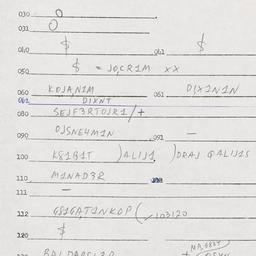 030 O
031 O
040 $ 041 $
050 $ = JOCRIM XX
060 KOJANIM 061 DIXININ
062 DIXNT
080 SEJF3RTOJR1/+
090 OJSNE4MIN 091 —
100 K81B1T )ALIJ1 )DRAJ @ALIJ1S
110 MINAD3R
111 —
112 G81GATINKOP ( 103120
120 $